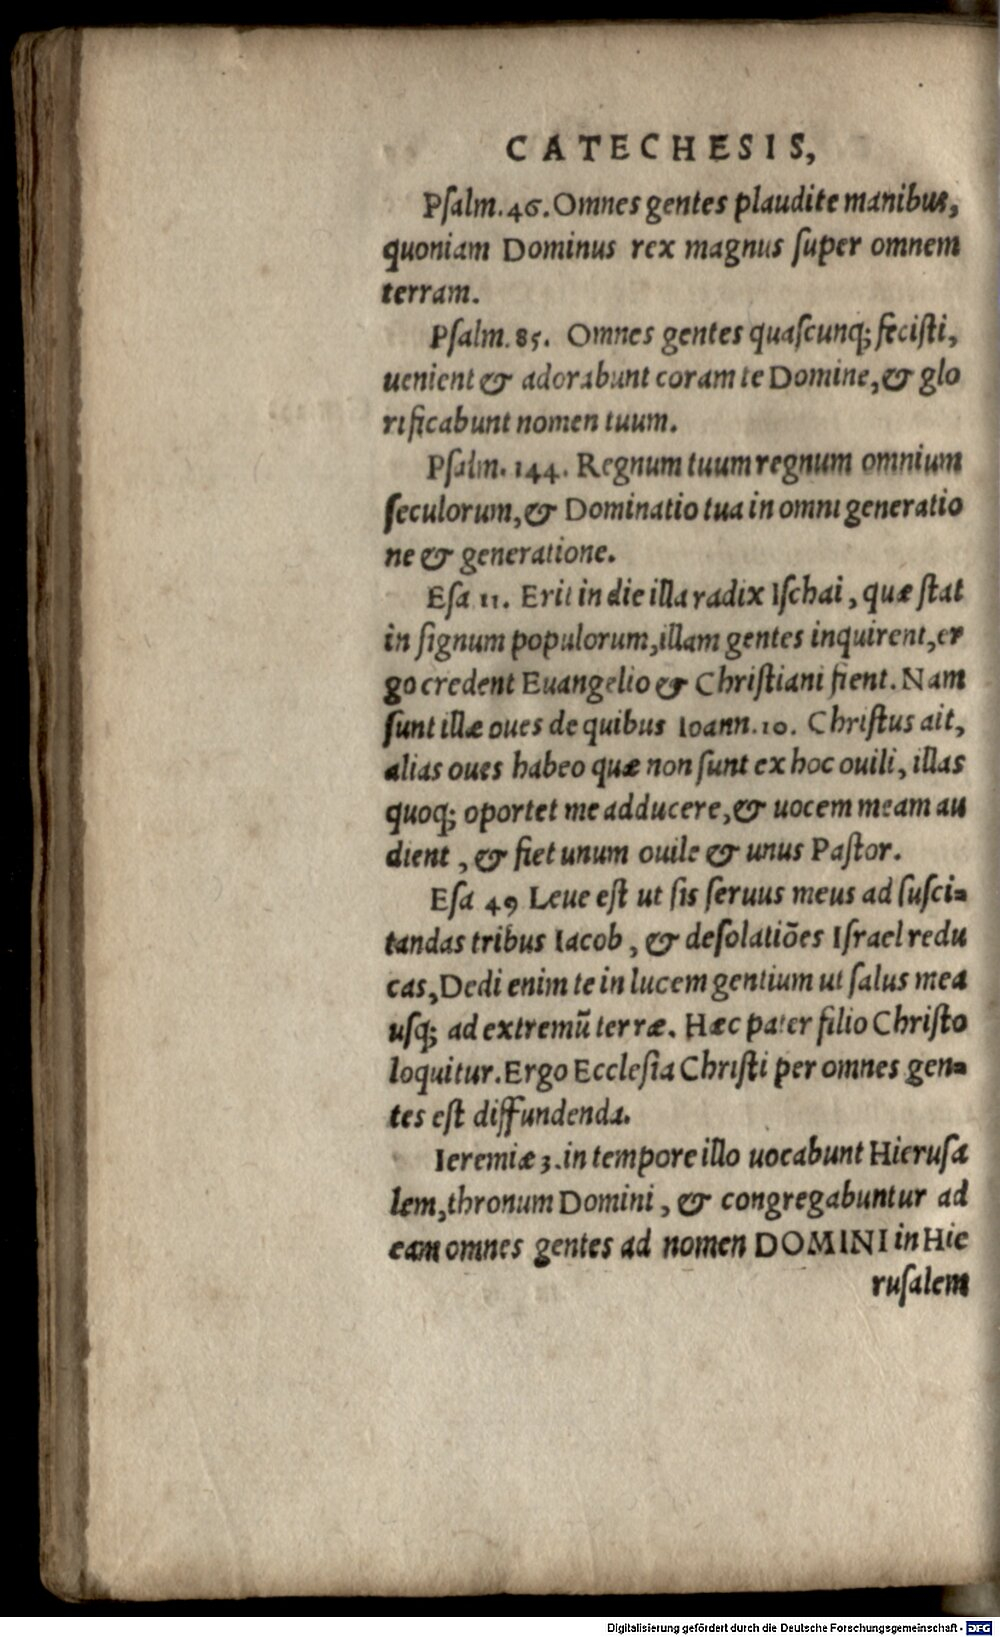 CATECHESIS,
Psalm.46. Omnes gentes plaudite manibus,
quoniam Dominus rex magnus super omnem
terram.
Psalm.85. Omnes gentes quascunq; fecisti,
uenient & adorabunt coram te Domine, & glo
rificabunt nomen tuum.
Psalm.144. Regnum tuum regnum omnium
seculorum, & Dominatio tua in omni generatio
ne & generatione.
Esa 11. Erit in die illa radix Ischai, quæ stat
in signum populorum, illam gentes inquirent, er
go credent Euangelio & Christiani fient. Nam
sunt illæ oues de quibus Ioann.10. Christus ait,
alias oues habeo quæ non sunt ex hoc ouili, illas
quoq; oportet me adducere, & uocem meam au
dient, & fiet unum ouile & unus Pastor.
Esa 49 Leue est ut sis seruus meus ad susci=
tandas tribus Iacob, & desolatiões Israel redu
cas, Dedi enim te in lucem gentium ut salus mea
usq; ad extremũ terræ. Hæc pater filio Christo
loquitur. Ergo Ecclesia Christi per omnes gen=
tes est diffundenda.
Ieremiæ 3. in tempore illo uocabunt Hierusa
lem, thronum Domini, & congregabuntur ad
eam omnes gentes ad nomen DOMINI in Hie
rusalem
Digitalisierung gefördert durch die Deutsche Forschungsgemeinschaft - DFG